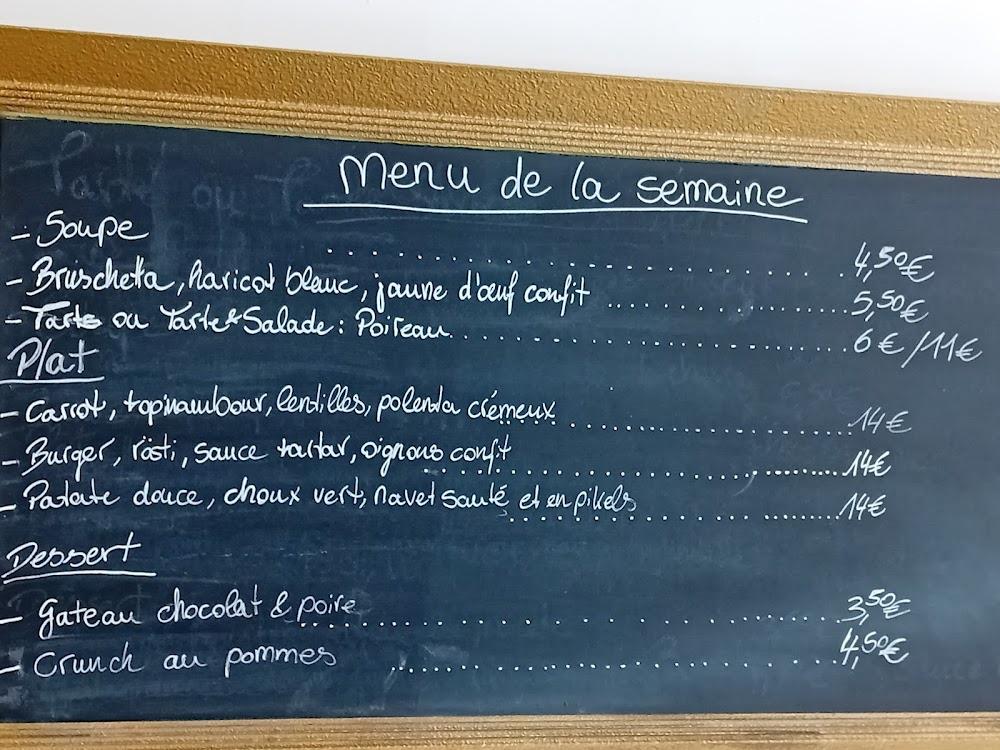 Menu de la semaine
- Soupe ..... 4,50€
- Bruschetta, haricot blanc, jaune d'œuf confit ..... 5,50€
- Tarte ou Tarte & Salade : Poireau ..... 6€/11€
Plat
- Carrot, topinambour, lentilles, polenta crémeux ..... 14€
- Burger, rösti, sauce tartar, oignons confit ..... 14€
- Patate douce, choux vert, navet sauté et en pikels ..... 14€
Dessert
- Gateau chocolat & poire ..... 3,50€
- Crunch au pommes ..... 4,50€